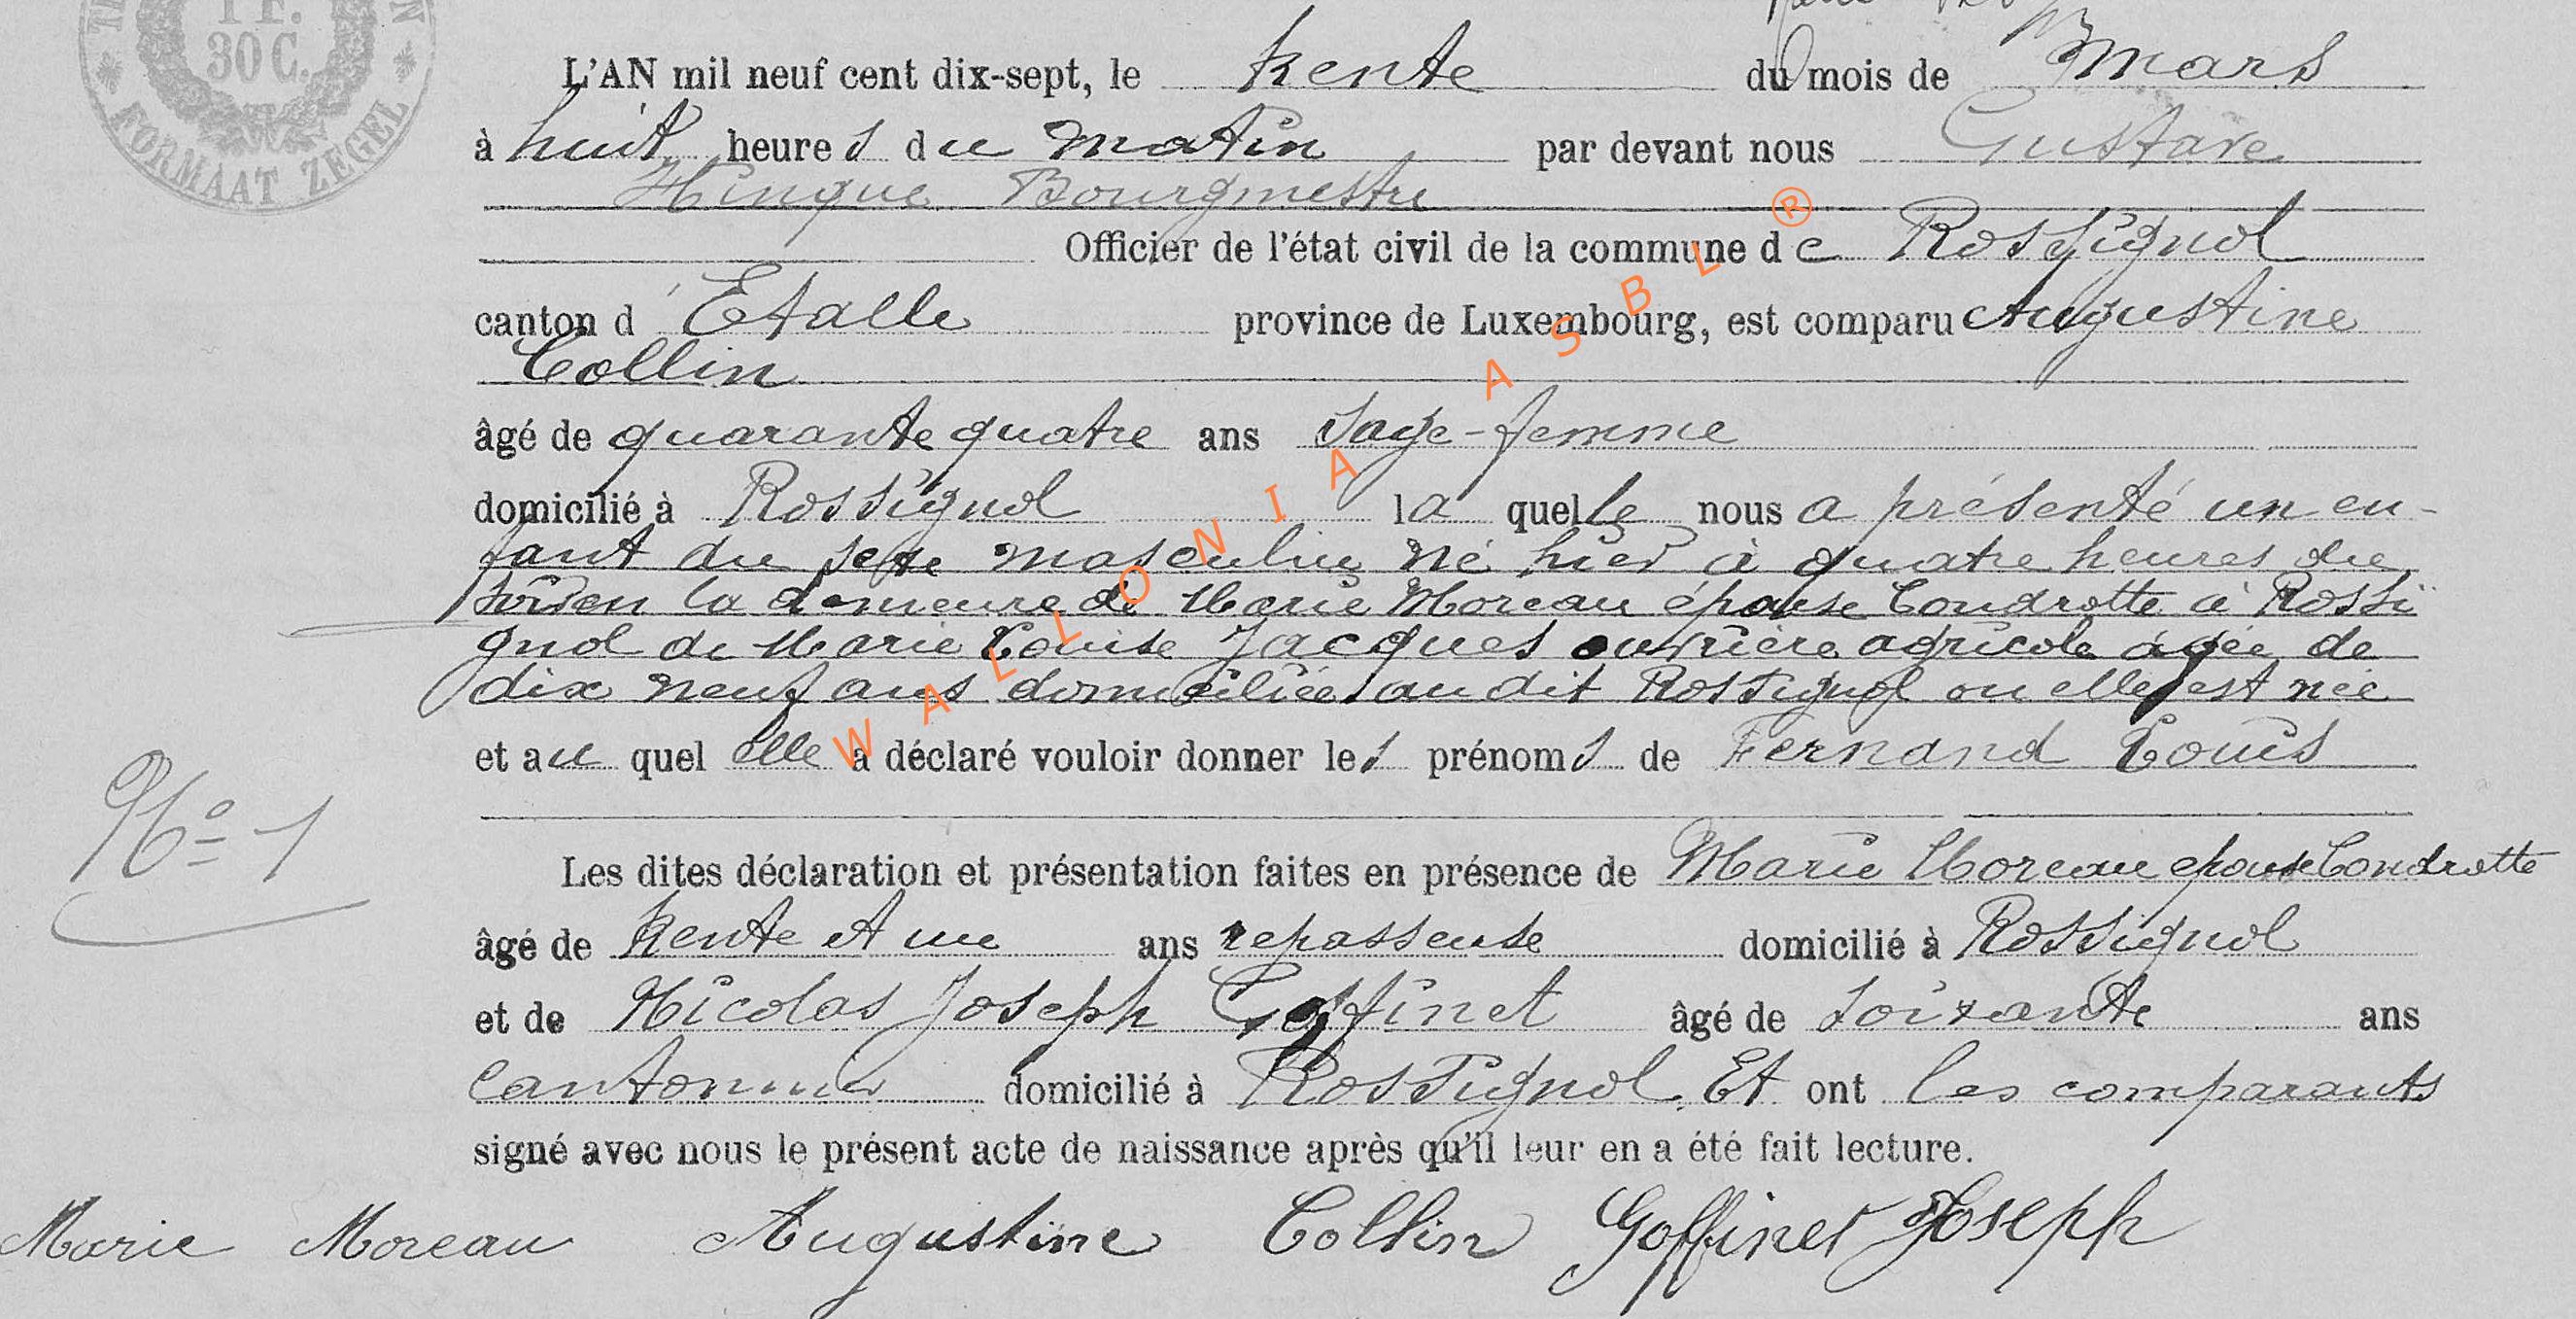 1 F.
30 C.
FORMAAT ZEGEL
L'AN mil neuf cent dix-sept, le trente du mois de mars
à huit heures du matin par devant nous Gustave
Hinque Bourgmestre
Officier de l'état civil de la commune de Rossignol
canton d'Etalle province de Luxembourg, est comparu Augustine
Collin
âgé de quarante quatre ans Sage-femme
domicilié à Rossignol la quelle nous a présenté un en-
fant du sexe masculin né hier à quatre heures du
soir en la demeure de Marie Moreau épouse Condrotte à Rossi
gnol de Marie Louise Jacques ouvrière agricole âgée de
dix neuf ans domiciliée au dit Rossignol ou elle est née
et au quel elle a déclaré vouloir donner les prénoms de Fernand Louis
No 1
Les dites déclaration et présentation faites en présence de Marie Moreau epouse Condrotte
âgé de trente et un ans repasseuse domicilié à Rossignol
et de Nicolas Joseph Goffinet âgé de soixante ans
cantonnier domicilié à Rossignol. Et ont les comparants
signé avec nous le présent acte de naissance après qu'il leur en a été fait lecture.
Marie Moreau Augustine Collin Goffinet Joseph
WALLONIA ASBL ®